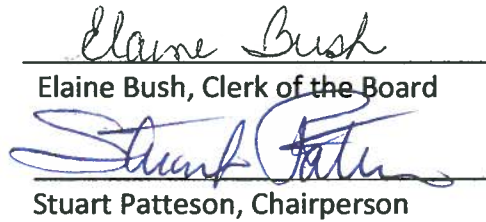 Elaine Bush
Elaine Bush, Clerk of the Board
Stuart Patteson
Stuart Patteson, Chairperson